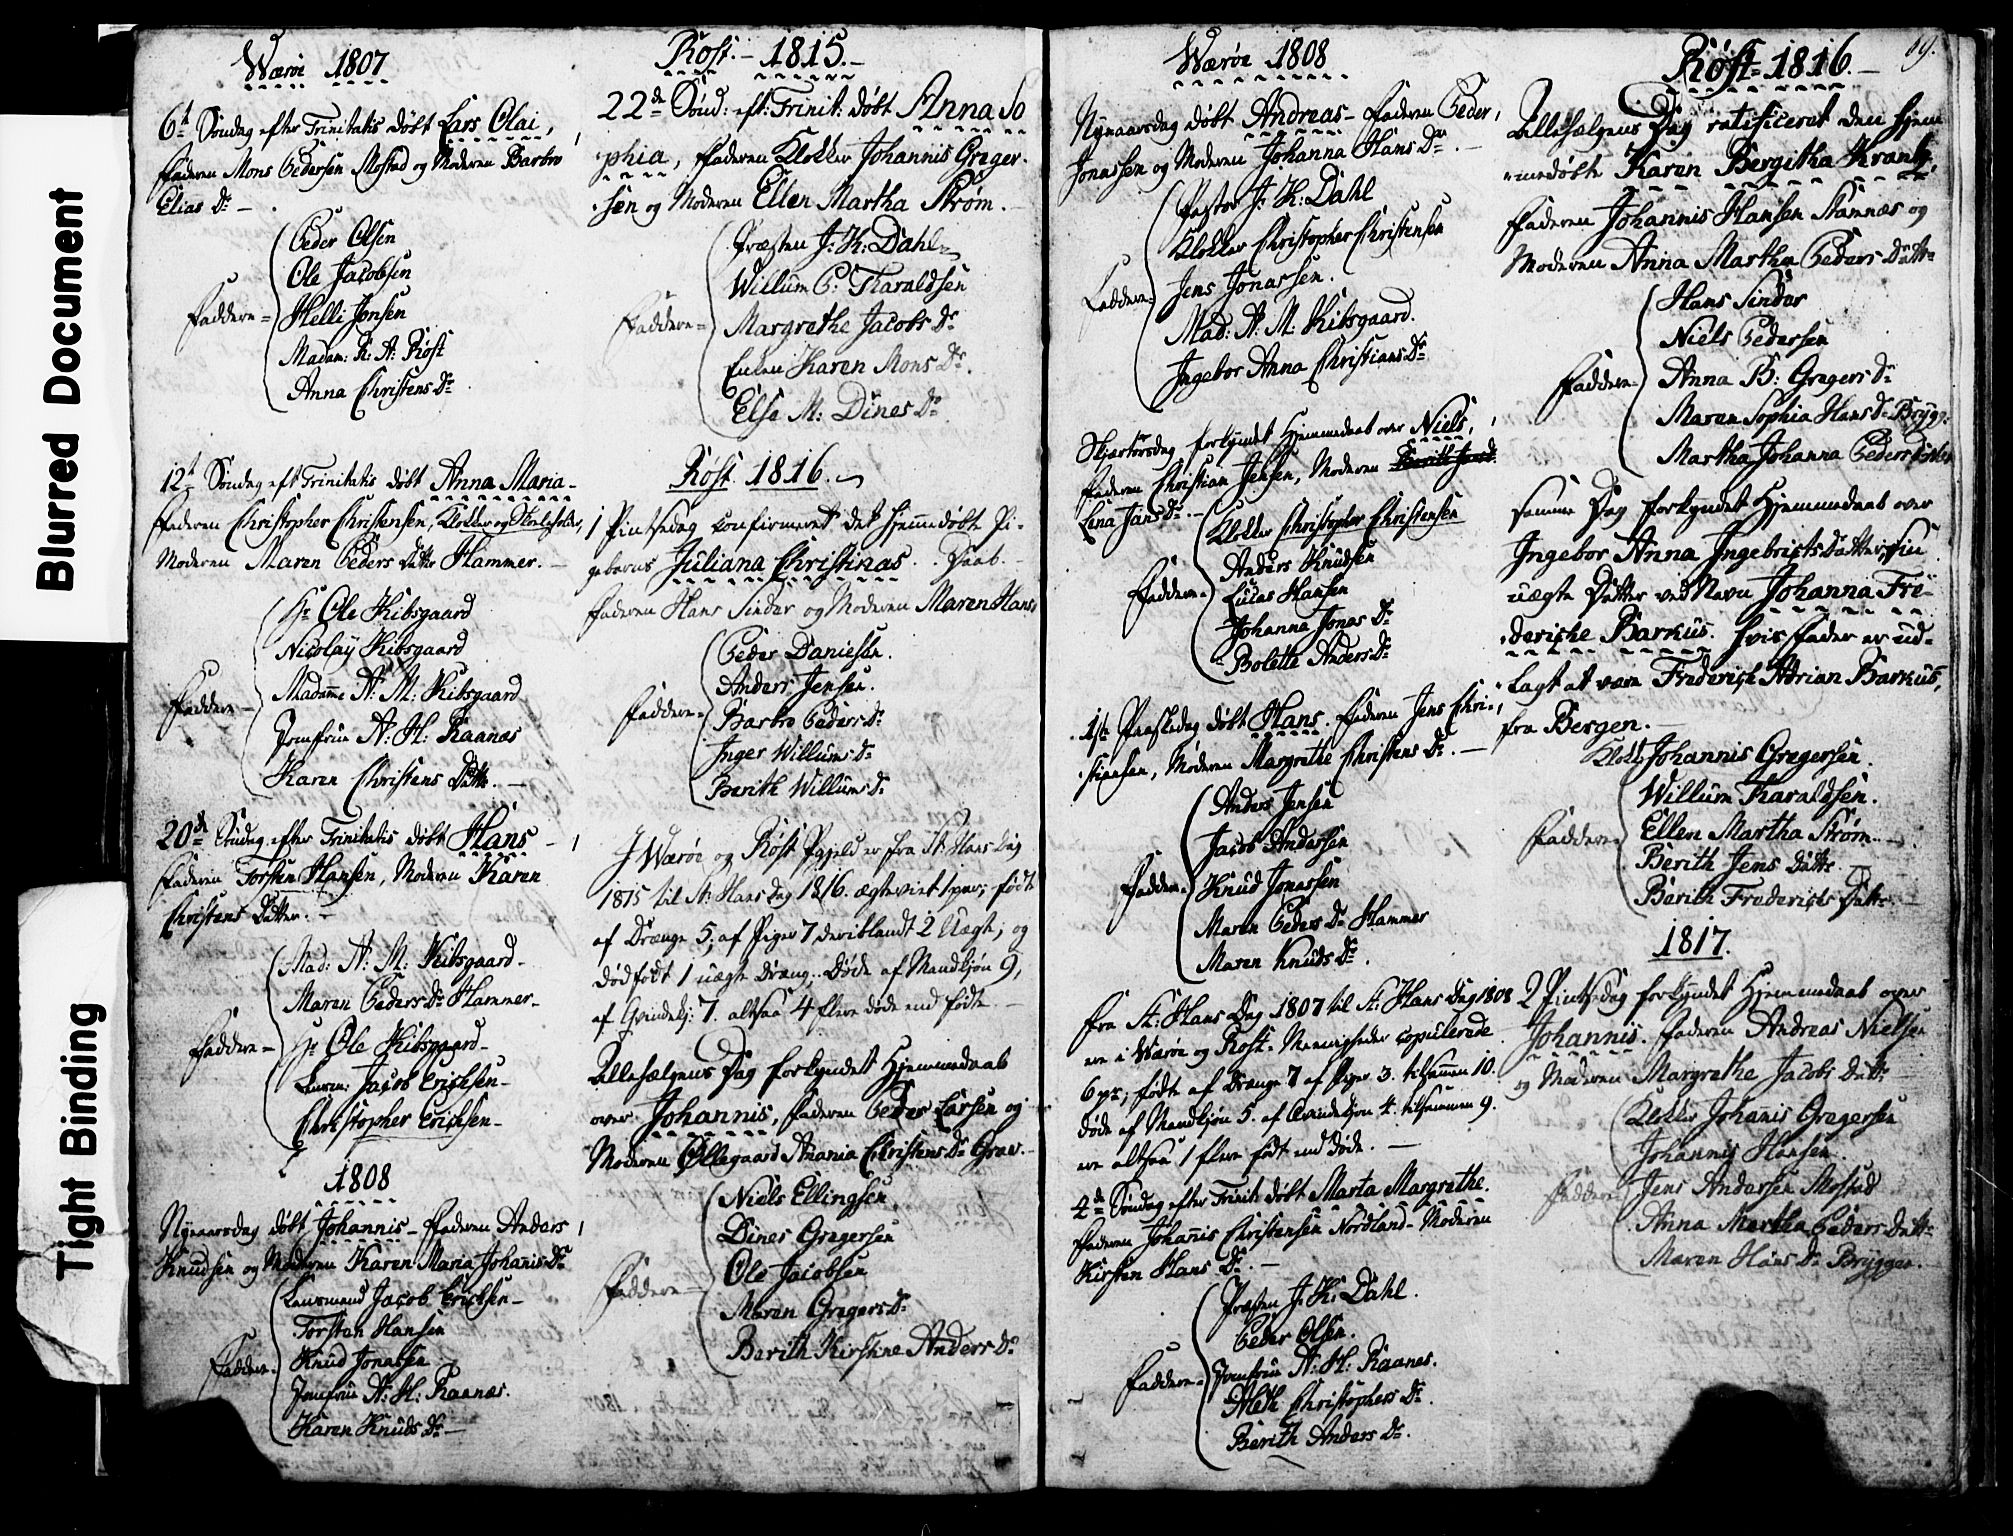 Blurred Document
Tight Binding
Wærøe 1807
6t Søndag efter Trinitatis døbt Lars Olai,
Faderen Mons Pedersen Mostad og Moderen Barbro
Elias Dr
Peder Olsen
Ole Jacobsen
Faddere = Helli Jonsen
Madam: K: A: Röst
Anna Christens Dr
12t Søndag eft Trinitatis døbt Anna Maria
Faderen Christopher Christensen, Klokker og
Moderen Maren Peders Datter Hammer.
Hr Ole Kibsgaard
Nicolay Kibsgaard
Faddere Madame A: M: Kibsgaard
Jomfrue A: H: Raanæs
Karen Christens Datter.
20de Søndag efter Trinitatis døbt Hans
Faderen Torsten Hansen, Moderen Karen
Christens Datter.
Mad: A: M: Kibsgaard
Maren Peders Dr Hammer
Faddere Hr Ole Kibsgaard
Lensm: Jacob Erichsen
Christopher Erichsen
1808
Nyeaarsdag døbt Johannis Faderen Anders
Knudsen og Moderen Karen Maria Johanis Dr
Lensmand Jacob Erichsen
Torsten Hansen
Faddere Knud Jonassen
Jomfrue A: H: Raanæs.
Karen Knuds Dr
Röst. 1815.
22de Sönd: eft: Trinit: døbt Anna So
phia, Faderen Klokker Johannis Greger-
sen og Moderen Ellen Martha Strøm.
Præsten J: K: Dahl
Willum P: Tharaldsen
Faddere = Margrethe Jacobs Dr
Enken Karen Mons Dr.
Else M: Dines Dr
Röst. 1816.
1 Pintsedag confirmeret det hjemmedøbte Pi-
gebarns Juliana Christinas Daab.
Faderen Hans Sindar og Moderen Maren Hans
Peder Danielsen.
Anders Jensen.
Faddere Barbro Peders Dr
Inger Willums Dr
Berith Willums Dr
I Wærøe og Röst Pgield er fra St Hans Dag
1815 til St: Hans Dag 1816. ægteviet 1 par; fødte
af Drænge 5; af Piger 7 deriblandt 2 Uægte; og
dødfødt 1 uægte Dräng; Døde af Mandkjön 9,
af Qvindekj: 7. altsaa 4 flere døde end fødte.
Allehelgens Dag forkyndet Hjemmedaab
over Johannis, Faderen Peder Larsen og
Moderen Øllegaard Anania Christens Dr Grav.
Niels Ellingsen
Dines Gregersen
Faddere Ole Jacobsen
Maren Gregers Dr
Berith Kirstine Anders Dr
Wærøe 1808
Nyeaarsdag døbt Andreas Faderen Peder
Jonassen og Moderen Johanna Hans Dr.
Pastor J: K: Dahl
Klokker Christopher Christensen
Faddere Jens Jonassen.
Mad: A: M: Kibsgaard.
Ingebor Anna Christians Dr
Skjærtorsdag forkyndet Hjemmedaab over Niels,
Faderen Christian Jensen, Moderen
Lena Jans Dr.
Klokker Christopher Christensen
Anders Knudsen
Faddere Lucas Hansen
Johanna Jonas Dr
Bolette Anders Dr
1ste Paaskedag døbt Hans. Faderen Jens Chri-
stiansen, Moderen Margrethe Christens Dr.
Anders Jensen
Jacob Andersen
Faddere Knud Jonassen
Maren Peders Dr Hammer
Maren Knuds Dr.
Fra St: Hans Dag 1807 til St: Hans Dag 1808
ere i Wærøe og Röst Meenigheder copulerede
6 pr, fødte af Drænge 7 af Piger 3. tilsammen 10.
døde af Mandkjön 5. af Qvindekjön 4. tilsammen 9.
ere altsaa 1 flere født end døde.
4de Søndag efter Trinit døbt Marta Margrethe.
Faderen Johanis Christensen Nordland Moderen
Kirsten Hans Dr.
Præsten J: K: Dahl.
Peder Olsen.
Faddere Jomfrue A: H: Raanes.
Aleth Christophers Dr.
Berith Anders Dr.
69.
Röst 1816.
Allehelgens Dag ratificeret den hjem
medøbte Karen Bergitha Krantz,
Faderen Johannis Hansen Stamnæs og
Moderen Anna Martha Peders Datter
Hans Sindar
Niels Pedersen
Faddere Anna B: Gregers Dr
Maren Sophia Hans Dr Brygg.
Martha Johanna Peders Datter
Samme Dag forkyndet Hjemmedaab over
Ingebor Anna Ingebrigts Datters
uægte Datter ved Navn Johanna Fre-
deriche Barkus. hvis Fader er ud-
lagt at være Friderich Adrian Barkus,
fra Bergen.
Klokk Johannis Gregersen.
Willum Tharaldsen.
Faddere Ellen Martha Strøm
Berith Jens Datter
Berith Frederichs Datter
1817.
2 Pintsedag forkyndet Hjemmedaab over
Johannis. Faderen Andreas Nielsen
og Moderen Margrethe Jacobs Datter
Klokker Johanis Gregersen
Johannis Hansen.
Faddere Jens Andersen Mostad
Anna Martha Peders Datter
Maren Hans Dr Brygge.